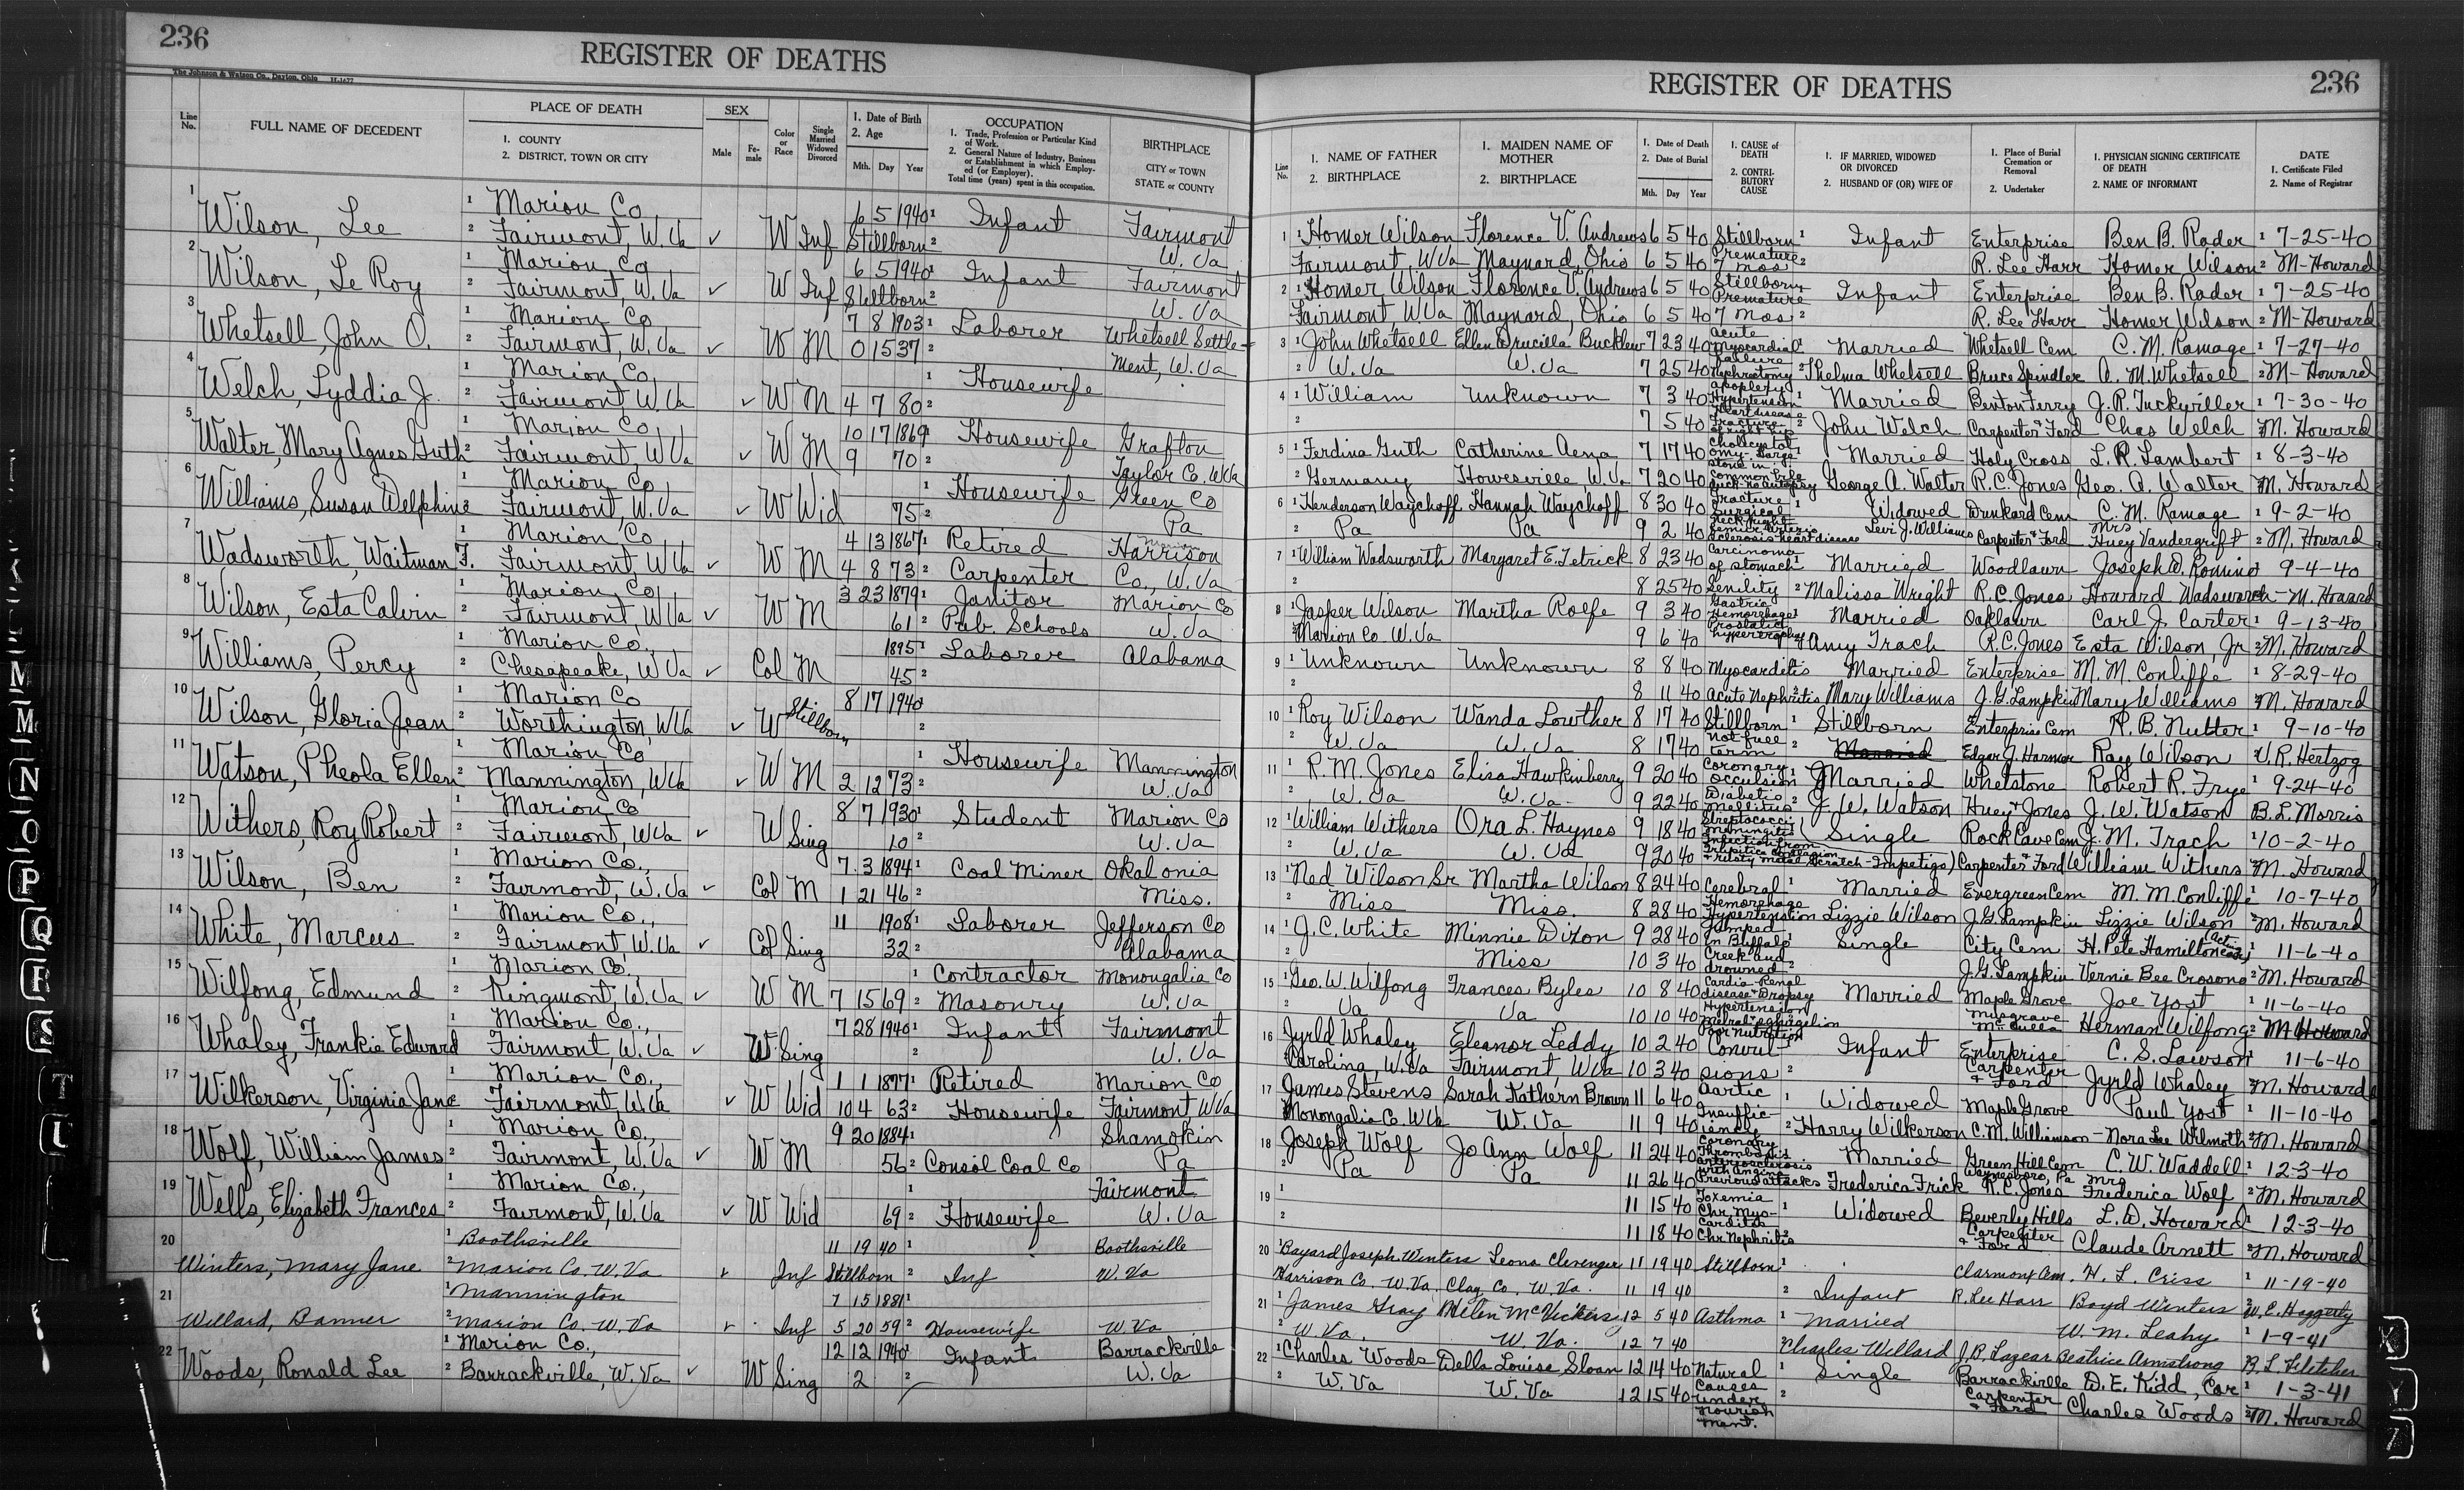 236
REGISTER OF DEATHS
The Johnson & Watson Co., Dayton, Ohio
Line No.
FULL NAME OF DECEDENT
PLACE OF DEATH
1. COUNTY
2. DISTRICT, TOWN OR CITY
SEX
Male
Female
Color or Race
Single Married Widowed Divorced
1. Date of Birth
2. Age
Mth. Day Year
OCCUPATION
1. Trade, Profession or Particular Kind of Work.
2. General Nature of Industry, Business or Establishment in which Employed (or Employer).
Total time (years) spent in this occupation.
BIRTHPLACE
CITY or TOWN
STATE or COUNTY
1 Wilson, Lee 1 Marion Co 6 5 1940 1 Infant Fairmont
2 Fairmont, W. Va ✓ W Inf Stillborn 2 W. Va
2 Wilson, Le Roy 1 Marion, Co 6 5 1940 1 Infant Fairmont
2 Fairmont, W. Va ✓ W Inf Stillborn 2 W. Va
3 Whetsell, John O. 1 Marion Co 7 8 1903 1 Laborer Whetsell Settle-
2 Fairmont, W. Va ✓ W M 0 15 37 2 ment, W. Va
4 Welch, Lyddia J. 1 Marion Co, 1 Housewife
2 Fairmont W. Va ✓ W M 4 7 80 2
5 Walter, Mary Agnes Guth 1 Marion Co, 10 17 1869 1 Housewife Grafton
2 Fairmont, W Va ✓ W M 9 70 2 Taylor Co. W Va
6 Williams, Susan Delphine 1 Marion Co, 1 Housewife Green Co
2 Fairmont, W. Va ✓ W Wid 75 2 Pa
7 Wadsworth, Waitman F. 1 Marion Co 4 13 1867 1 Retired Harrison
2 Fairmont, W Va ✓ W M 4 8 73 2 Carpenter Co., W. Va
8 Wilson, Esta Calvin 1 Marion Co, 3 23 1879 1 Janitor Marion Co
2 Fairmont, W Va ✓ W M 61 2 Pub. Schools W. Va
9 Williams, Percy 1 Marion Co, 1895 1 Laborer Alabama
2 Chesapeake, W Va ✓ Col M 45 2
10 Wilson, Gloria Jean 1 Marion Co 8 17 1940 1
2 Worthington, W Va ✓ W Stillborn 2
11 Watson, Pheola Ellen 1 Marion Co 1 Housewife Mannington
2 Mannington, W Va ✓ W M 2 12 73 2 W. Va
12 Withers, Roy Robert 1 Marion Co 8 7 1930 1 Student Marion Co
2 Fairmont, W Va ✓ W Sing 10 2 W. Va
13 Wilson, Ben 1 Marion Co., 7 3 1894 1 Coal Miner Okalonia
2 Fairmont, W. Va ✓ Col M 1 21 46 2 Miss.
14 White, Marcus 1 Marion Co., 11 1908 1 Laborer Jefferson Co
2 Fairmont, W. Va ✓ Col Sing 32 2 Alabama
15 Wilfong, Edmund 1 Marion Co, 1 Contractor Monongalia Co
2 Kingmont, W. Va ✓ W M 7 15 69 2 Masonry W. Va
16 Whaley, Frankie Edward 1 Marion Co., 7 28 1940 1 Infant Fairmont
2 Fairmont, W. Va ✓ W Sing 2 W. Va
17 Wilkerson, Virginia Jane 1 Marion Co., 1 1 1877 1 Retired Marion Co
2 Fairmont, W. Va ✓ W Wid 10 4 63 2 Housewife Fairmont W Va
18 Wolf, William James 1 Marion Co., 9 20 1884 1 Shamokin
2 Fairmont, W. Va ✓ W M 56 2 Consol Coal Co Pa
19 Wells, Elizabeth Frances 1 Marion Co., 1 Fairmont
2 Fairmont, W. Va ✓ W Wid 69 2 Housewife W. Va
20 Winters, Mary Jane 1 Boothsville 11 19 40 1 Boothsville
2 Marion Co. W. Va ✓ Inf Stillborn 2 Inf W. Va
21 Willard, Banner 1 Mannington 7 15 1881 1
2 Marion Co. W. Va ✓ Inf 5 20 59 2 Housewife W. Va
22 Woods, Ronald Lee 1 Marion Co., 12 12 1940 1 Infant Barrackville
2 Barrackville, W. Va ✓ W Sing 2 2 W. Va
REGISTER OF DEATHS
236
Line No.
1. NAME OF FATHER
2. BIRTHPLACE
1. MAIDEN NAME OF MOTHER
2. BIRTHPLACE
1. Date of Death
2. Date of Burial
Mth. Day Year
1. CAUSE of DEATH
2. CONTRIBUTORY CAUSE
1. IF MARRIED, WIDOWED OR DIVORCED
2. HUSBAND OF (OR) WIFE OF
1. Place of Burial Cremation or Removal
2. Undertaker
1. PHYSICIAN SIGNING CERTIFICATE OF DEATH
2. NAME OF INFORMANT
DATE
1. Certificate Filed
2. Name of Registrar
1 1 Homer Wilson Florence V. Andrews 6 5 40 Stillborn 1 Infant Enterprise Ben B. Rader 1 7-25-40
Fairmont, W Va Maynard, Ohio 6 5 40 Premature 7 mos 2 R. Lee Harr Homer Wilson 2 M-Howard
2 1 Homer Wilson Florence V. Andrews 6 5 40 Stillborn Premature Infant Enterprise Ben B. Rader 1 7-25-40
Fairmont W. Va Maynard, Ohio 6 5 40 7 mos 2 R. Lee Harr Homer Wilson 2 M-Howard
3 1 John Whetsell Ellen Drucilla Bucklew 7 23 40 Acute Myocardial failure 1 Married Whetsell Cem C. M. Ramage 1 7-27-40
2 W. Va W. Va 7 25 40 Nephrectomy 2 Thelma Whetsell Bruce Spindler A. M. Whetsell 2 M-Howard
4 1 William Unknown 7 3 40 apoplexy Hypertension 1 Married Benton Ferry J. R. Tuckwiller 1 7-30-40
2 7 5 40 Heart disease Fracture of right hip 2 John Welch Carpenter & Ford Chas Welch M. Howard
5 1 Ferdina Guth Catherine Aena 7 17 40 Cholecystotomy-Large stone in 1 Married Holy Cross L. R. Lambert 1 8-3-40
2 Germany Howesville W. Va 7 20 40 common bile duct-no autopsy George A. Walter R. C. Jones Geo. A. Walter M. Howard
6 1 Henderson Waychoff Hannah Waychoff 8 30 40 Fracture Surgical 1 Widowed Drunkard Cem C. M. Ramage 1 9-2-40
2 Pa Pa 9 2 40 neck right femur Arterio sclerosis heart disease Levi J. Williams Carpenter & Ford Mrs Huey Vandergrift 2 M. Howard
7 1 William Wadsworth Margaret E. Tetrick 8 23 40 Carcinoma of stomach 1 Married Woodlawn Joseph D. Romino 9-4-40
2 8 25 40 Senility 2 Malissa Wright R. C. Jones Howard Wadsworth - M. Howard
8 1 Jasper Wilson Martha Rolfe 9 3 40 Gastric Hemorrhage 1 Married Oaklawn Carl J. Carter 1 9-13-40
2 Marion Co. W. Va 9 6 40 Prostatic hypertrophy 2 Amy Trach R. C. Jones Esta Wilson, Jr 2 M. Howard
9 1 Unknown Unknown 8 8 40 Myocarditis Married Enterprise M. M. Conliffe 1 8-29-40
2 8 11 40 Acute Nephritis 2 Mary Williams J. G. Lampkin Mary Williams 2 M. Howard
10 1 Roy Wilson Wanda Lowther 8 17 40 Stillborn 1 Stillborn Enterprise Cem R. B. Nutter 1 9-10-40
2 W. Va W. Va 8 17 40 not full term 2 Married Edgar J. Harmer Ray Wilson V. R. Hertzog
11 1 R. M. Jones Eliza Hawkinberry 9 20 40 Coronary occulsion 1 Married Whetstone Robert R. Frye 1 9-24-40
2 W. Va W. Va 9 22 40 Diabetis mellitus 2 J. W. Watson Huey & Jones J. W. Watson B. L. Morris
12 1 William Withers Ora L. Haynes 9 18 40 Streptococci meningitis 1 Single Rock Cave Cem J. M. Trach 1 10-2-40
2 W. Va W. Va 9 20 40 infection from rusty metal scratch-Impetigo) Carpenter & Ford William Withers 2 M. Howard
13 1 Ned Wilson Sr Martha Wilson 8 24 40 Cerebral Hemorrhage 1 Married Evergreen Cem M. M. Conliffe 1 10-7-40
2 Miss Miss. 8 28 40 Hypertension Lizzie Wilson J. G. Lampkin Lizzie Wilson 2 M. Howard
14 1 J. C. White Minnie Dixon 9 28 40 Jumped in Buffalo 1 Single City Cem H. Pete Hamilton (Acting 1 11-6-40
2 Miss 10 3 40 Creek and drowned 2 J. G. Lampkin Vernie Bee Crosono 2 M. Howard
15 1 Geo. W. Wilfong Frances Byles 10 8 40 Cardio-Renal disease & Dropsy Married Maple Grove Joe Yost 1 11-6-40
2 Va Va 10 10 40 Hypertension Musgrave McCulla Herman Wilfong 2 M Howard
16 Jyrld Whaley Eleanor Leddy 10 2 40 Poor nutrition Convul- Infant Enterprise C. S. Lawson 1 11-6-40
Carolina, W. Va Fairmont, W Va 10 3 40 sions 2 Carpenter & Ford Jyrld Whaley 2 M. Howard
17 1 James Stevens Sarah Kathern Brown 11 6 40 Aortic 1 Widowed Maple Grove Paul Yost 1 11-10-40
Monongalia C. W Va W. Va 11 9 40 Insufficiency 2 Harry Wilkerson C. M. Williamson - Nora Lee Wilmoth 2 M. Howard
18 Joseph Wolf Jo Ann Wolf 11 24 40 Coronary Thrombosis arteriosclerosis Married Green Hill Cem C. W. Waddell 1 12-3-40
2 Pa Pa 11 26 40 with angina Previous attacks Frederica Frick Waynesboro, Pa R. C. Jones Mrs Frederica Wolf 2 M. Howard
19 1 11 15 40 Toxemia Chr. Myo- 1 Widowed Beverly Hills L. D. Howard 1 12-3-40
2 11 18 40 carditis Chr Nephritis Carpenter & Ford Claude Arnett 2 M. Howard
20 1 Bayard Joseph Winters Leona Clevenger 11 19 40 Stillborn 1 Clarmont Cem. H. L. Criss 1 11-19-40
Harrison Co. W. Va. Clay Co. W. Va. 11 19 40 2 Infant R. Lee Harr Boyd Winters 2 W. E. Haggerty
21 1 James Gray Helen McVickers 12 5 40 Asthma 1 Married W. M. Leahy 1 1-9-41
2 W. Va. W. Va. 12 7 40 2 Charles Willard J. R. Lazear Beatrice Armstrong B. L. Fletcher
22 1 Charles Woods Della Louise Sloan 12 14 40 Natural 1 Single Barrackville D. E. Kidd, Cor 1 1-3-41
2 W. Va W. Va 12 15 40 Causes under nourishment. 2 Carpenter & Ford Charles Woods 2 M. Howard